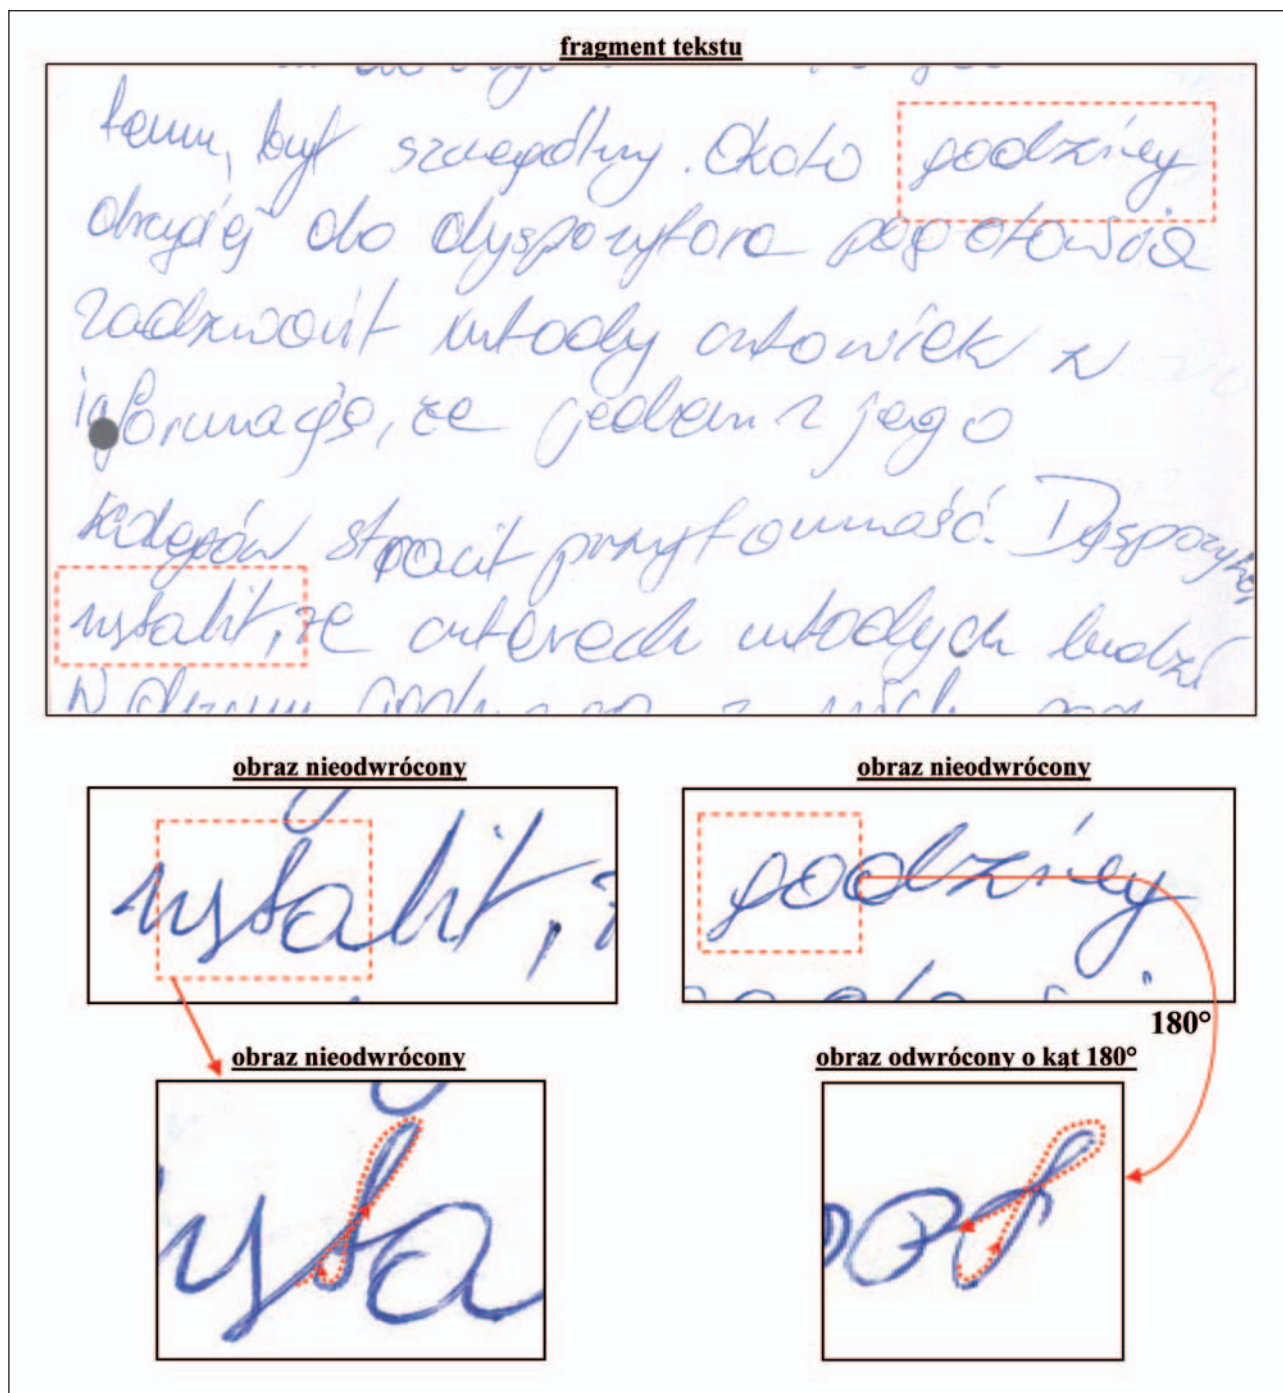 fragment tekstu
temu, był szczególny. Około godziny
drugiej do dyspozytora pogotowia
zadzwonił młody człowiek z
informacją, że jeden z jego
kolegów stracił przytomność. Dyspozytor
ustalił, że czterech młodych ludzi
obraz nieodwrócony
obraz nieodwrócony
ustalił,
godziny
180°
obraz nieodwrócony
obraz odwrócony o kąt 180°